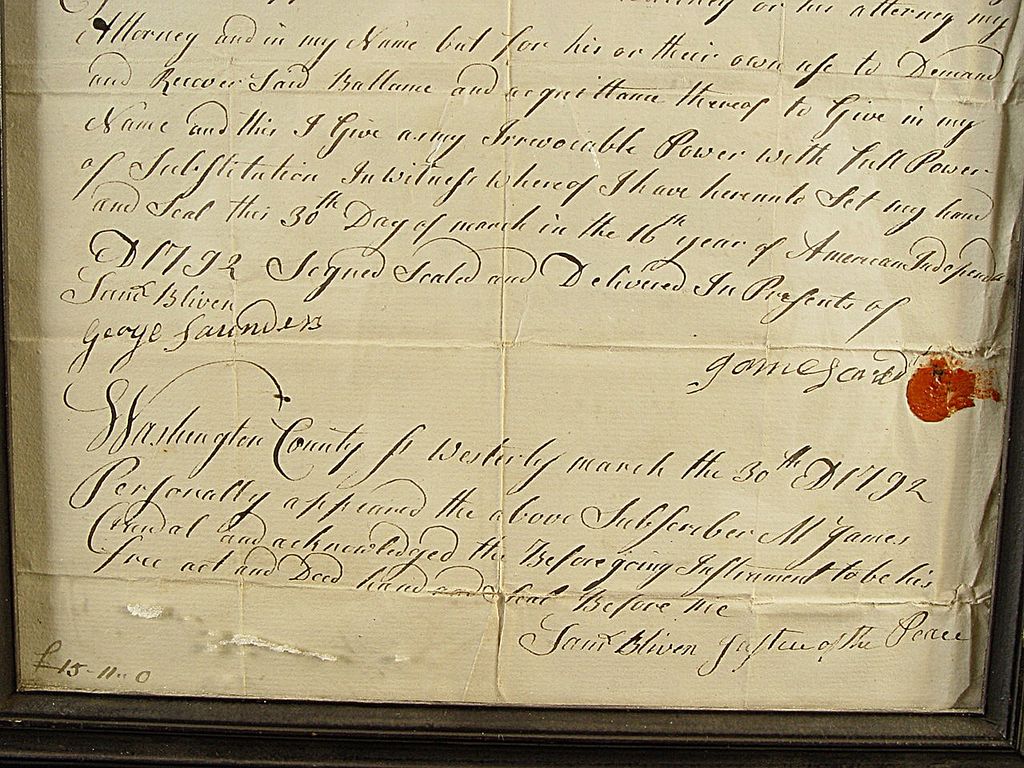 or his atterney my
Attorney and in my Name but for his or their own use to Demand
and Recover Said Ballance and acquittance thereof to Give in my
Name and this I Give as my Irrevocable Power with full Power
of Substitution In witness Whereof I have hereunto Set my hand
and Seal this 30th Day of march in the 16th year of American Independence
D 1792 Signed Sealed and Delivered In Presents of
Saml Bliven
George Saunders
Washington County Ss Westerly march the 30th D 1792
Personally appeared the above Subscriber Mr James
Crandal and acknowledged the Beforegoing Instrument to be his
free act and Deed hand and Seal Before Me
Saml Bliven Justice of the Peace
£15-11-0